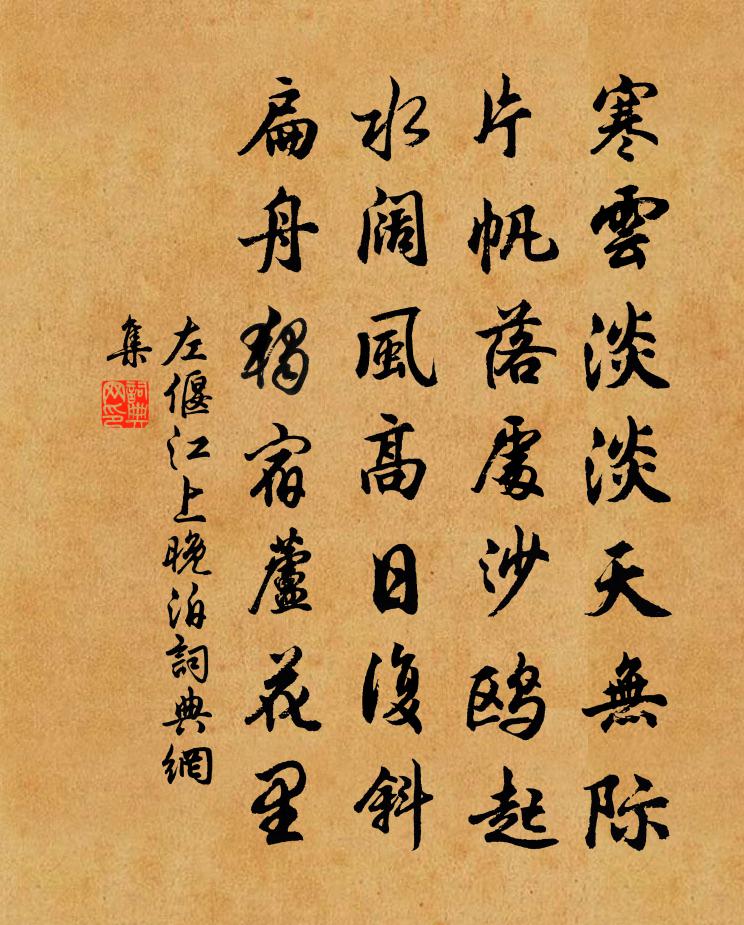 寒雲淡淡天無际
片帆落處沙鸥起
水阔風高日復斜
扁舟獨宿蘆花里
左偃江上晚泊詞典網
集
詞典
网印